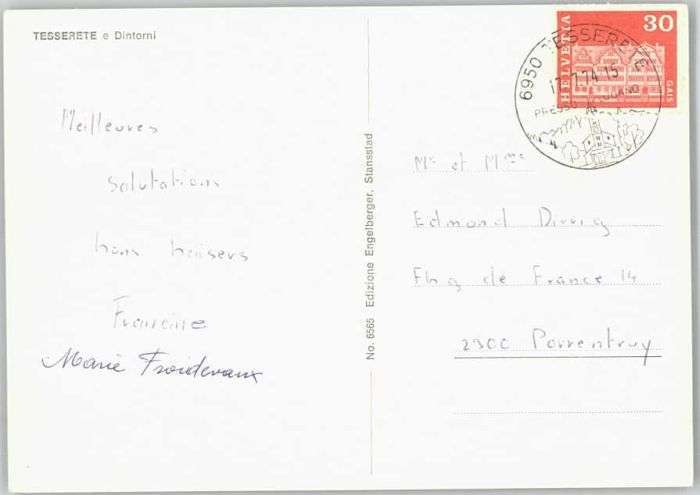 TESSERETE e Dintorni
Meilleures
salutations
bons baisers
Francine
Marie Froidevaux
No. 6565 Edizione Engelberger, Stansstad
HELVETIA
30
GAIS
6950 TESSERETE
17.7.74-15
PRESSO LUGANO
Mr et Mme
Edmond
Fbg de France 14
2900 Porrentruy